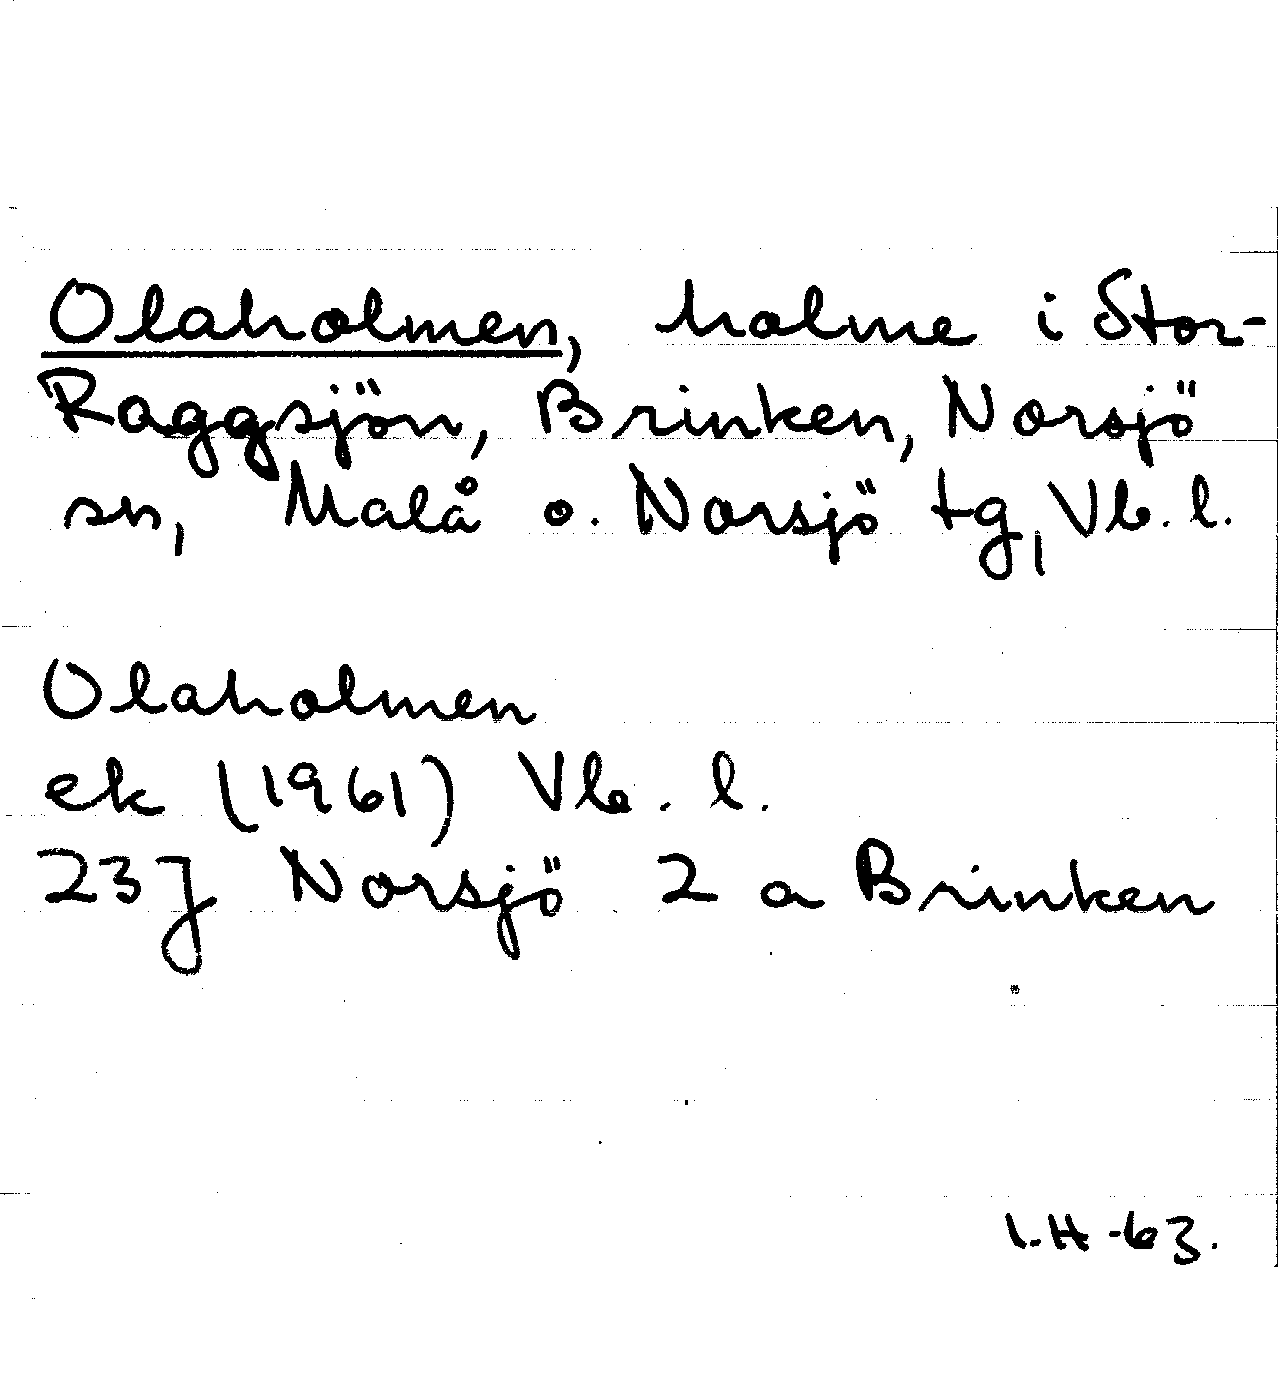 Olaholmen, holme i Stor-
Raggsjön, Brinken, Norsjö
sn, Malå o. Norsjö tg, Vb. l.
Olaholmen
ek (1961) Vb. l.
23J Norsjö 2 a Brinken
I.H -63.